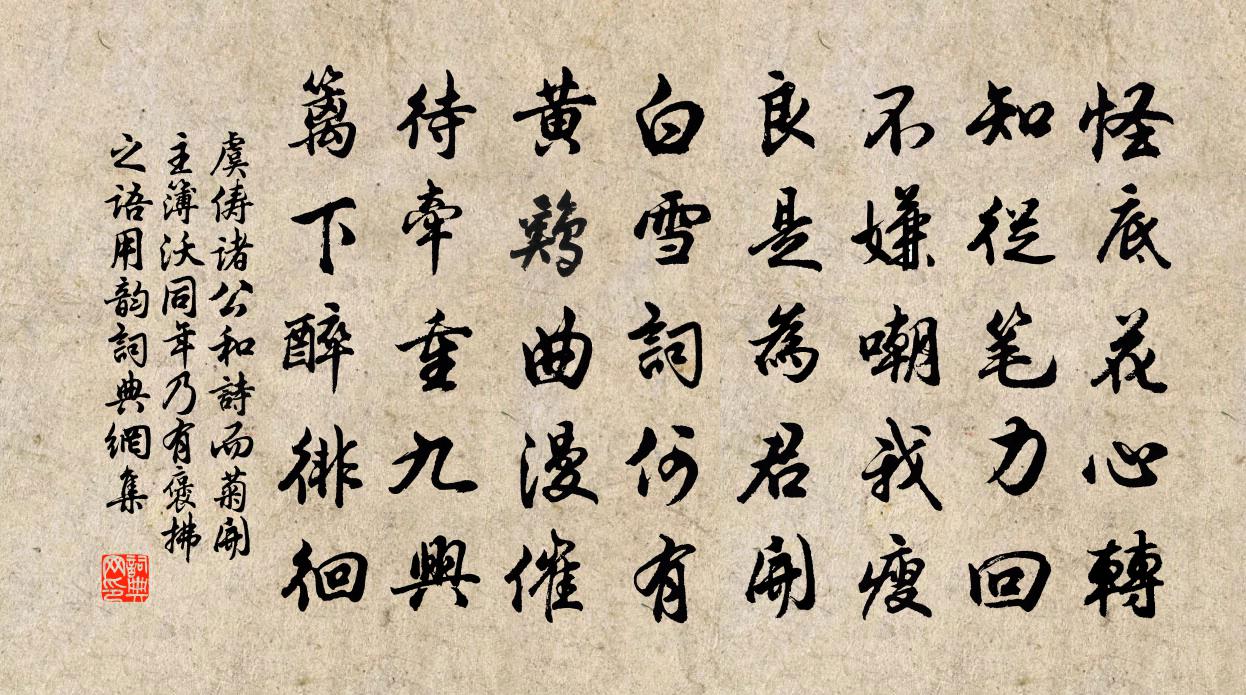 怪底花心轉
知從笔力回
不嫌嘲我瘦
良是為君開
白雪詞何有
黄鷄曲漫催
待牽重九興
籬下醉徘徊
虞儔诸公和詩而菊開
主簿沃同年乃有褒拂
之语用韵詞典網集
詞典网印